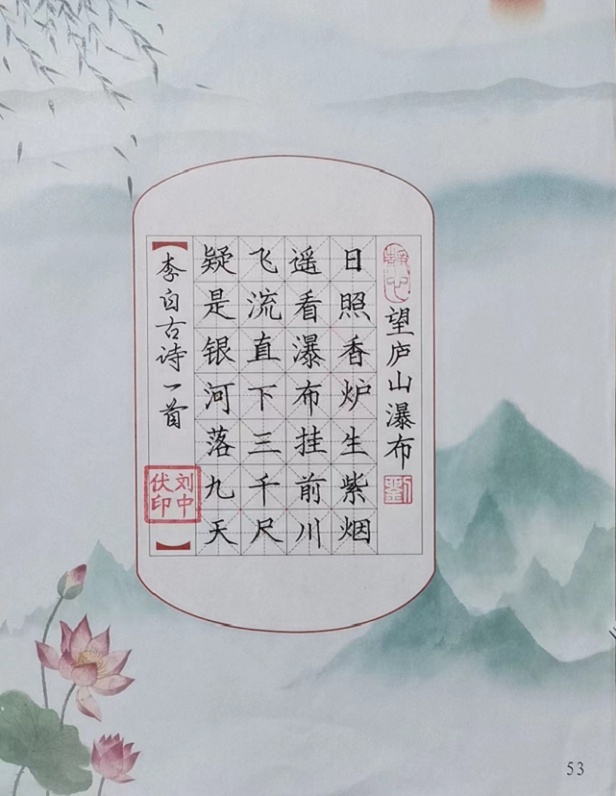 静心
望庐山瀑布
劉
日照香炉生紫烟
遥看瀑布挂前川
飞流直下三千尺
疑是银河落九天
李白古诗一首
刘中伏印
53